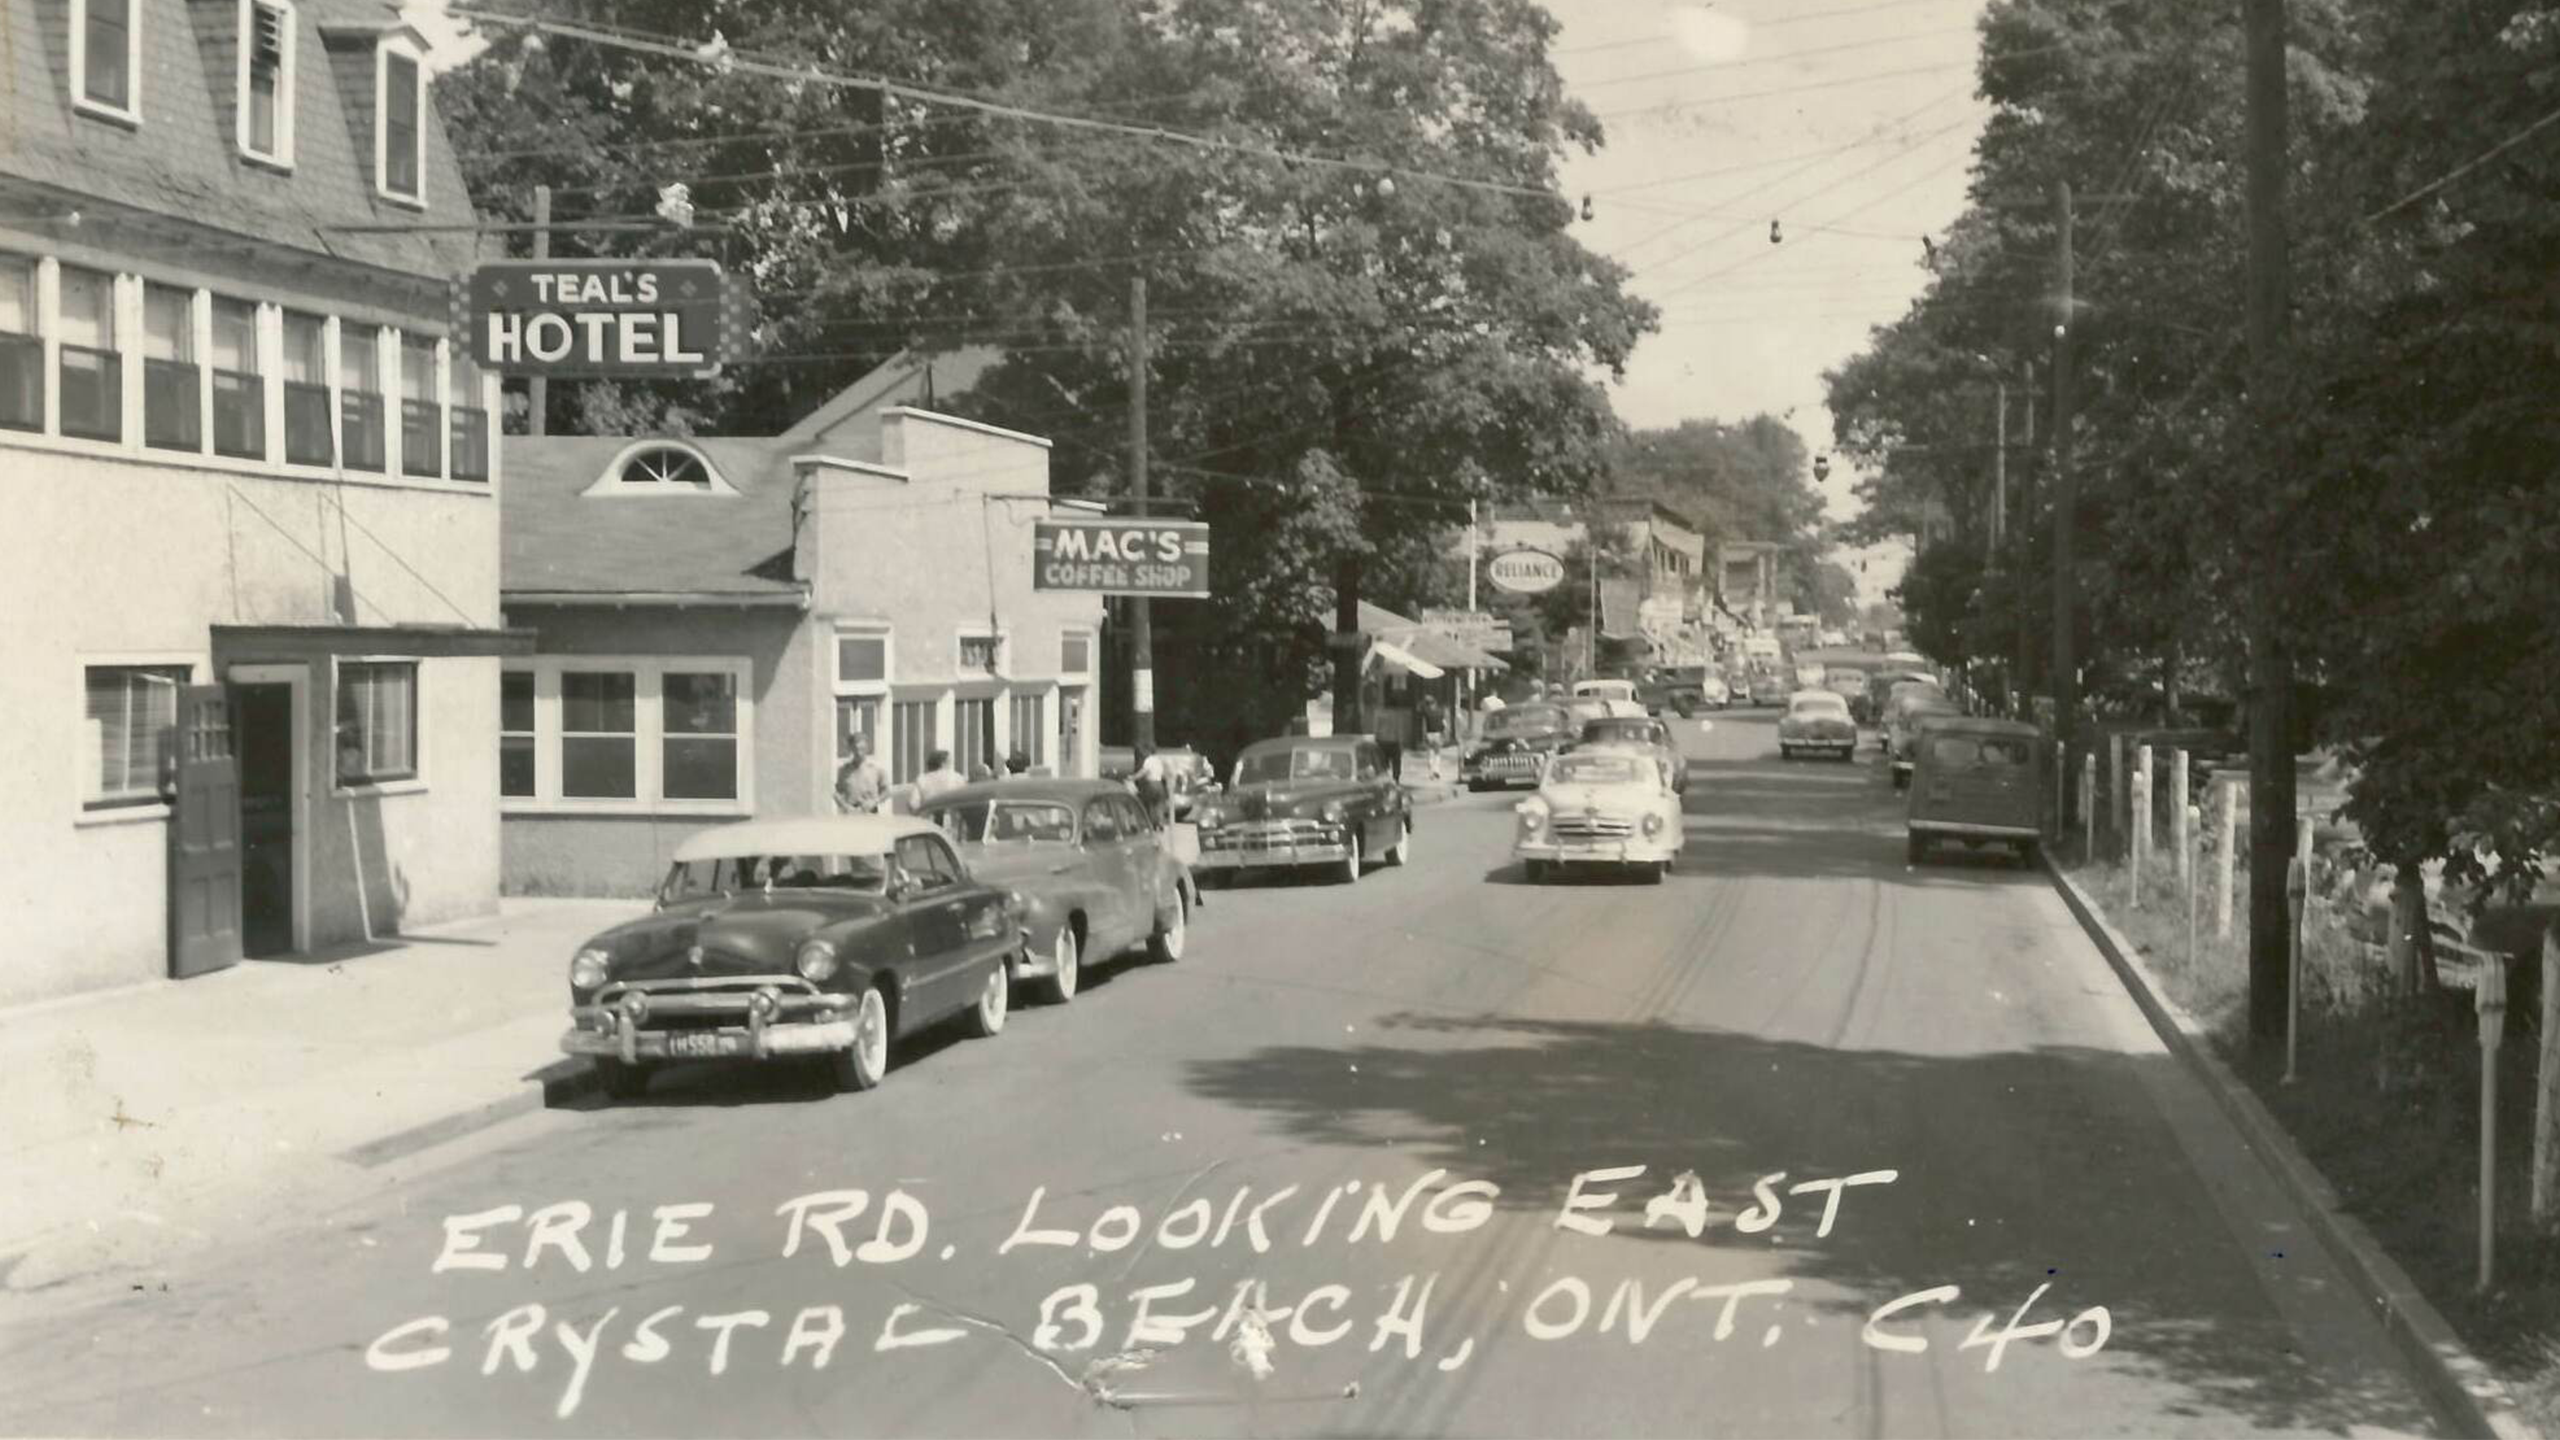 TEAL'S
HOTEL
MAC'S
COFFEE SHOP
RELIANCE
ERIE RD. LOOKING EAST
CRYSTAL BEACH, ONT. C40